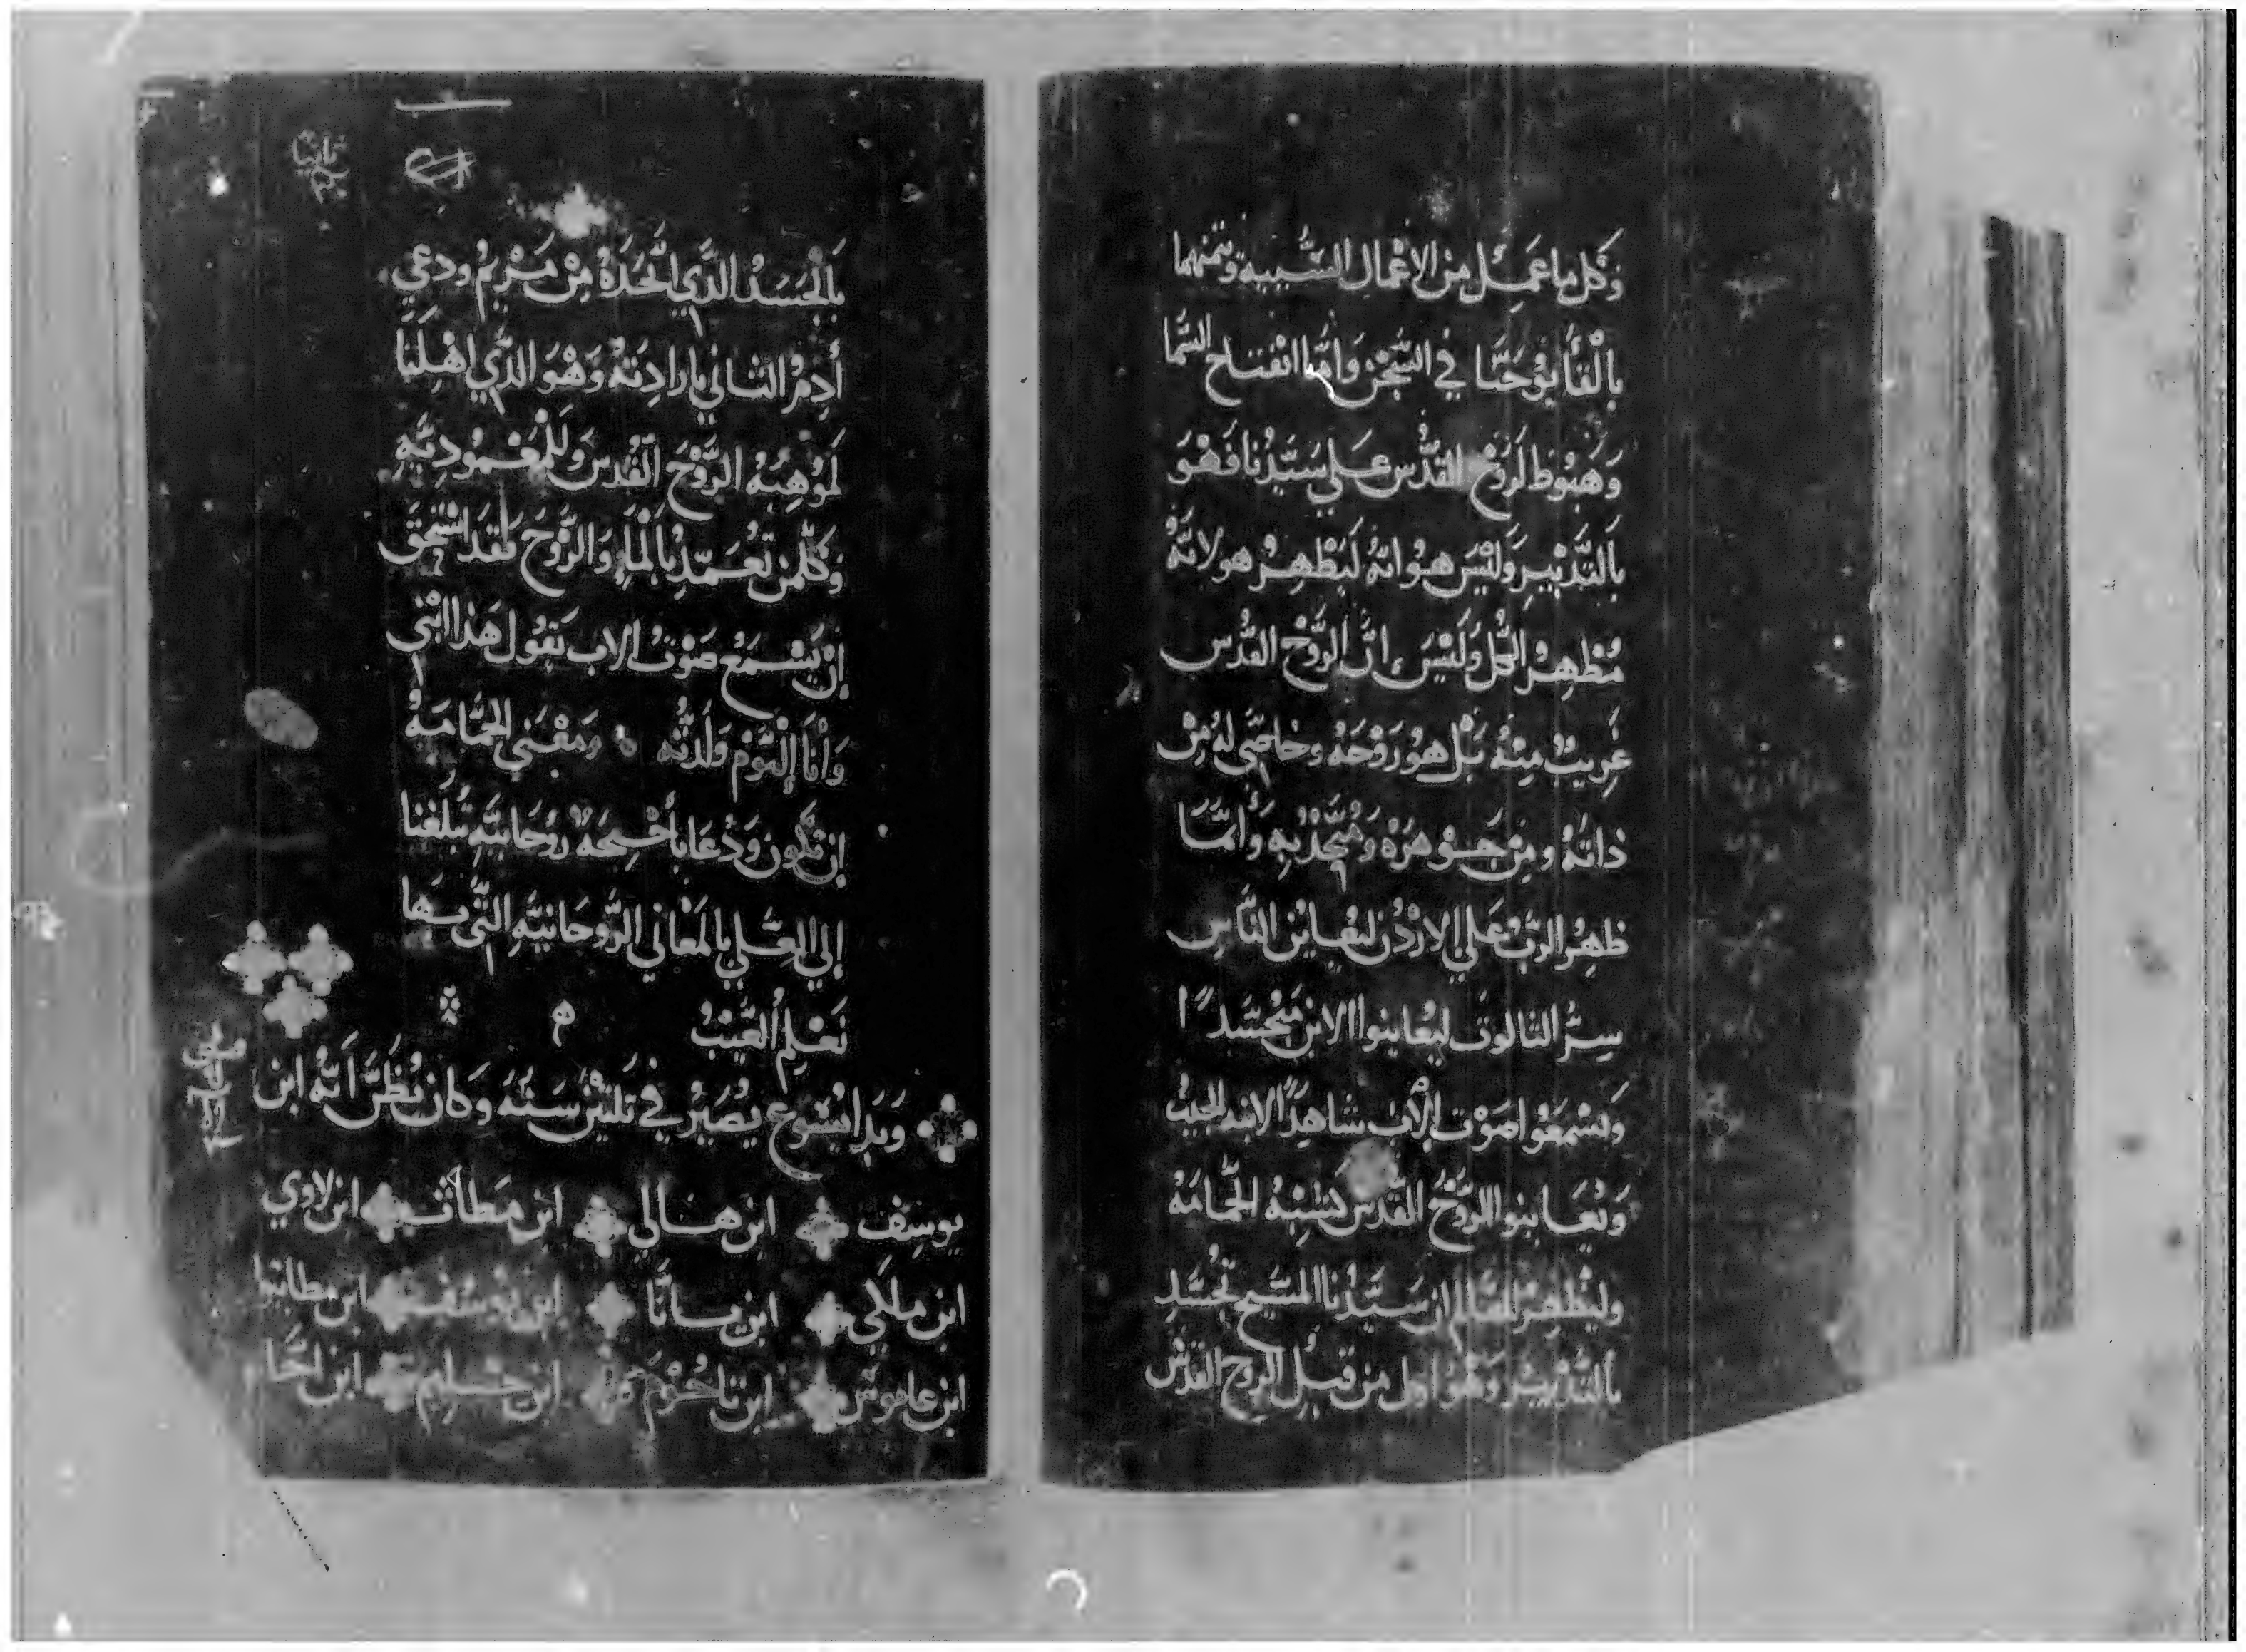 وَكل ما عَمِل من الاعْمال السَّيِيه وتمنهما
بالْقا يُوحَنا في السِّجن وَامَّا انْفتاح السَّما
وَهبُوط لرَوْح القدُس عَلي سَيّدُنا فَهْوَ
بالتَّدْبيِر وَليْسَ هو انهُ لَيظْهِرُ هو لانَّهُ
مُظهِرُ الكل وَلَيْسَ انَّ الرُّوْح القدُس
غِريبٌ منهُ بَلْ هوُ رَوْحَهُ وخاصَّي لهُ مِنْ
ذاتهُ ومِن جَوهرَهْ وَمُتَّحِدْ بهِ وَأمَّا
ظهِرُ الربُّ عَلي الارْدُن ليُعاين النَّاس
سِرُّ التالوت ليُعاينوا الابن متجسّداً
وَيسْمَعوا صَوْت الأب شاهِداً لابنه الحبيبُ
وَيُعَاينوا الرُّوْحُ القُدس بشبْهُ الحَّمامَهُ
وليُظهِر للعَالم ان سَيّدُنا المسَيح تجسَّدِ
بالتدْبير وَهُوَ اول من قبل الروح القدْس
بالجَسَدُ الدَّي اتَّحَدَهُ مِنْ مَرْيمُ ودعي
أدمُ التاني بارادِتهُ وَهْوَ الدَّي اهْلنا
لموْهِبةُ الرَّوْحَ القُدس وَللمْعْموُدِيّهِ
وَكلّمن تعُمّدْ بالمَآءِ وَالرَّوْحَ فَقدَ اسْتحقَ
إنْ يَسْمَعْ صَوْت الاب يَقوُل هَذا ابْني
وَانا اليَوْم وَلَدتُه وَمَعْنَي الحَّمامَهْ
إن نكون وَدْعَا بأجْنِحَهْ رُوحَانيّهِ تُبلغنا
إلي العِلي بالمعَاني الرُّوحَانيهِ التَّي بها
نَعْلم العَيْبُ
وَبدا يسُوع يُصَيْرُ في تلتينْ سَنهَ وَكان يُظَنَّ اَنَّه ابن
يوسِف ابن هالي ابن مَطاث ابن لاوي
ابن ملاكي ابن يانَّا ابن يوُسُف ابن مطاتيا
ابن عاموُص ابن ناحُوْم ابن حسلِم ابن انحَا